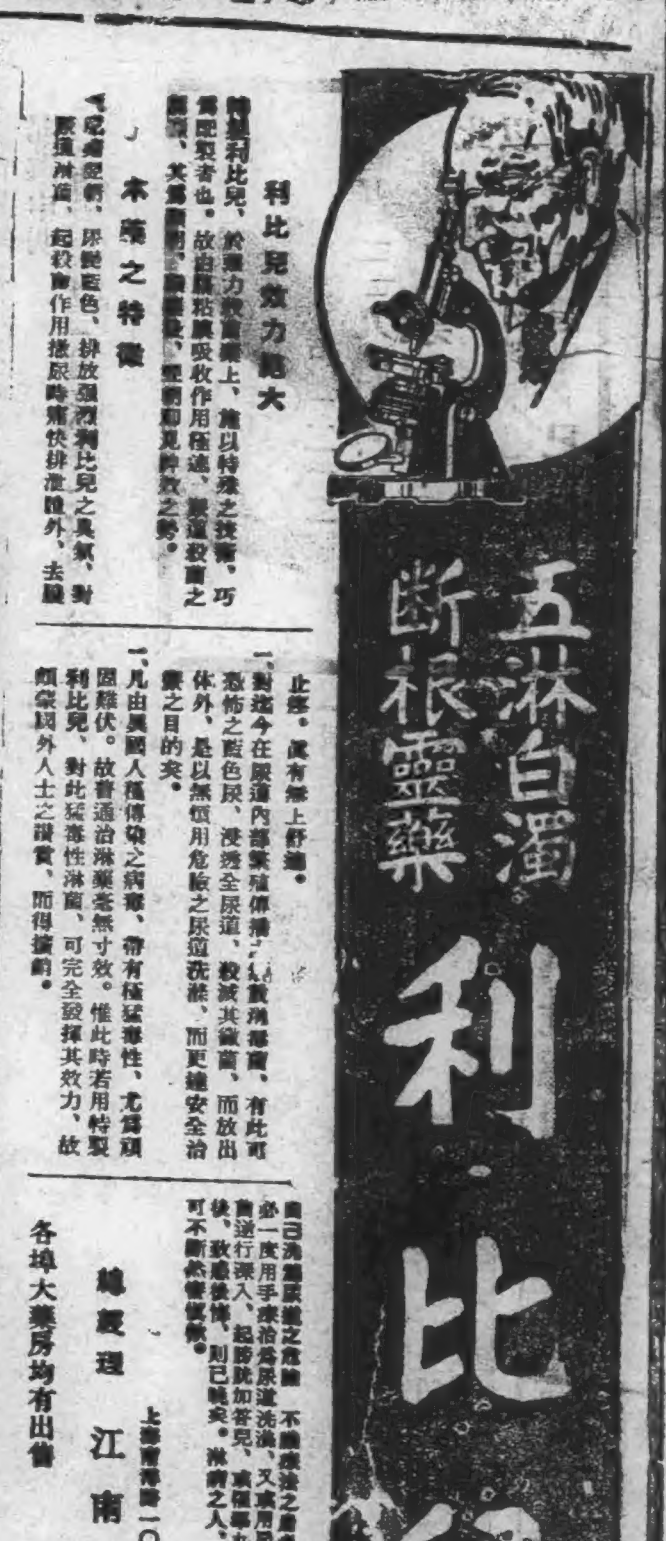 五淋白濁
斷根靈藥
利比
利比兒效力絕大
特製利比兒、於強力殺菌藥上、施以特殊之技術、巧
爲配製者也。故由腸粘膜吸收作用極速、尿道殺菌之
其爲顯明、
本藥之特徵
尿變藍色、排放强烈利比兒之臭氣、對
尿道淋菌、起殺菌作用撒尿時痛快排泄體外、去膿
止疼。眞有無上舒適。
一、對迄今在尿道內部繁殖傳播之 有此可
恐怖之藍色尿、浸透全尿道、殺滅其黴菌、而放出
体外、是以無慣用危險之尿道洗滌、而更達安全治
療之目的矣。
一、凡由異國人種傳染之病毒、帶有極猛毒性、尤爲頑
固難伏。故普通治淋藥毫無寸效。惟此時若用特製
利比兒、對此猛毒性淋菌、可完全發揮其效力、故
頗蒙國外人士之讃賞、而得擴銷。
自己洗滌尿道之危險 不
必一度用手療治爲尿道洗滌、又或用
菌逆行深入、起膀胱加答兒、
後、致感後悔、則已晚矣。淋病之人、
可不斷然
上海
總經理 江南
各埠大藥房均有出售